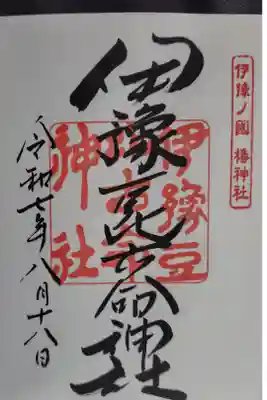 伊豫ノ國 椿神社
伊豫豆比古命神社
伊豫豆
比古命
神社
令和七年八月十八日